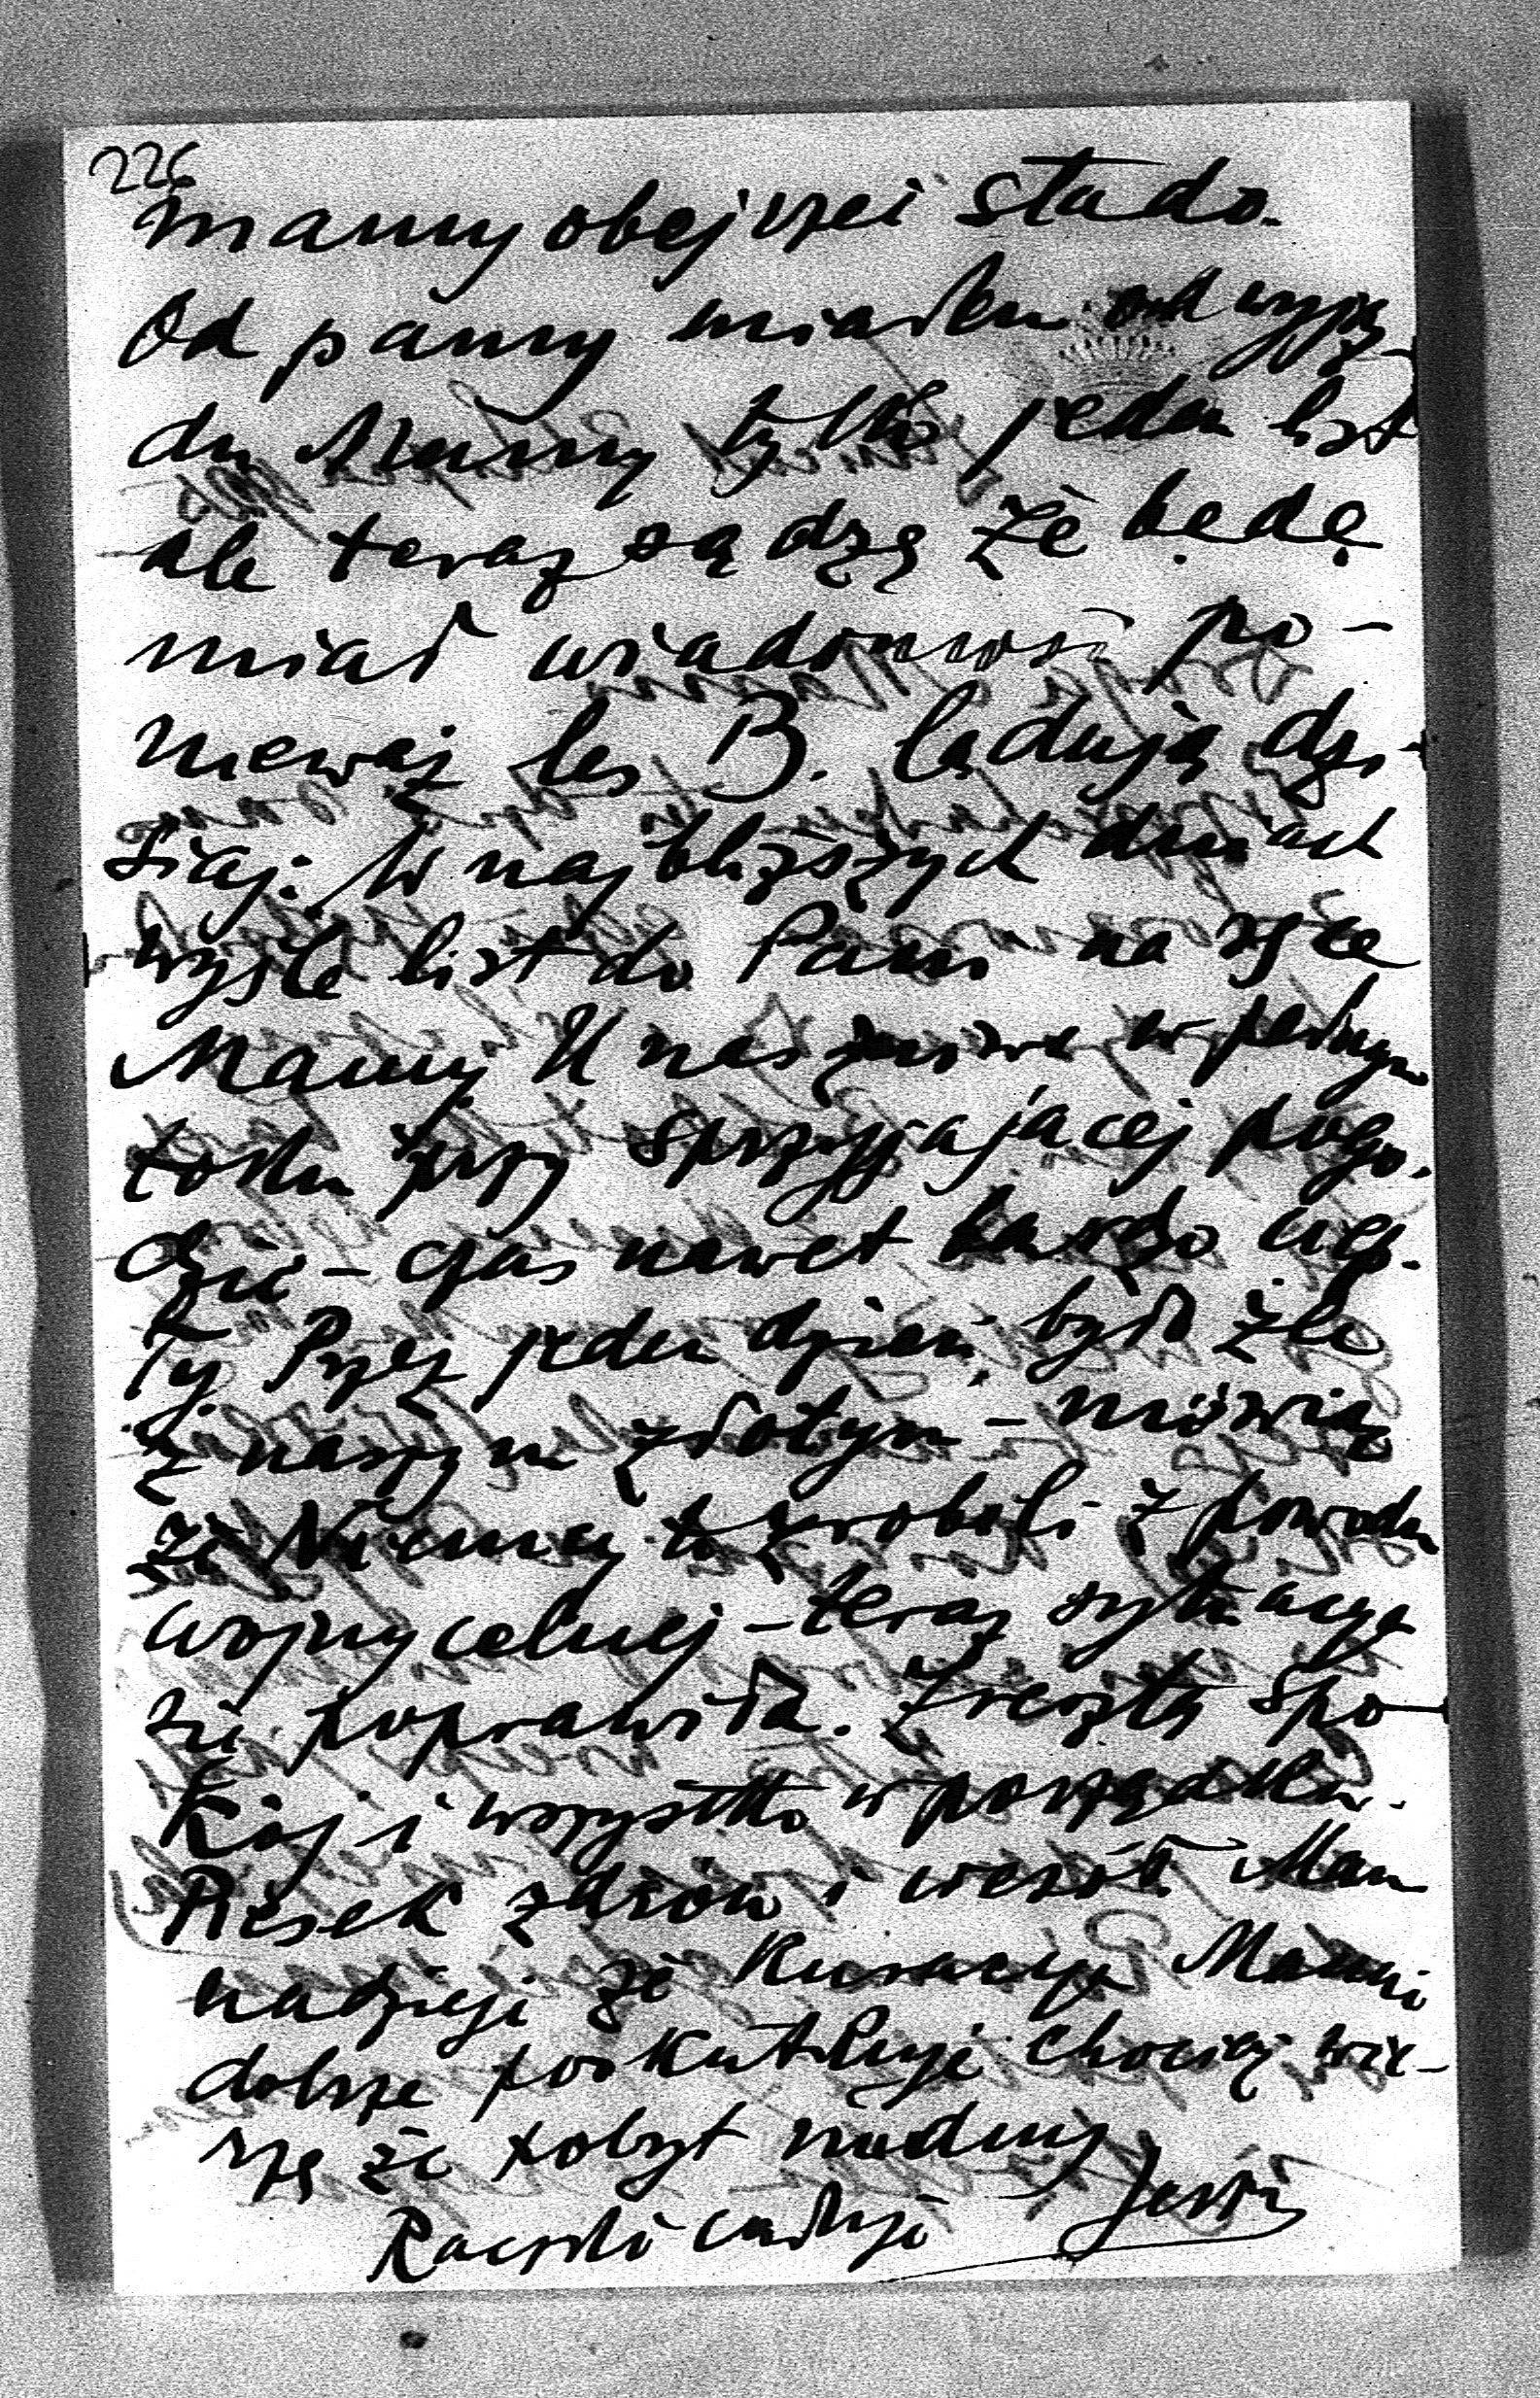 226
mamy obejrzeć stado.
Od panny miałem od wyjaz-
du Mamy tylko jeden list
ale teraz sądzę że będę
miał wiadomość po-
nieważ les B. lądują dzi-
siaj. W najbliższych dniach
wyślę list do Pauso na ręce
Mamy. U nas żniwa w pełnym
toku przy sprzyjającej pogo-
dzie – czas nawet bardzo ciep-
ły. Przez jeden dzień było źle
z naszym złotym – mówią
że Niemcy to zrobili z powodu
wojny celnej – teraz sytuacya
się poprawiła. Zresztą spo-
kój i wszystko w porządku.
Piesek zdrów i wesół. Mam
nadzieję że kuracya Mamie
dobrze poskutkuje chociaż wie-
rzę że pobyt nudny
Rączki całuję Jerzy